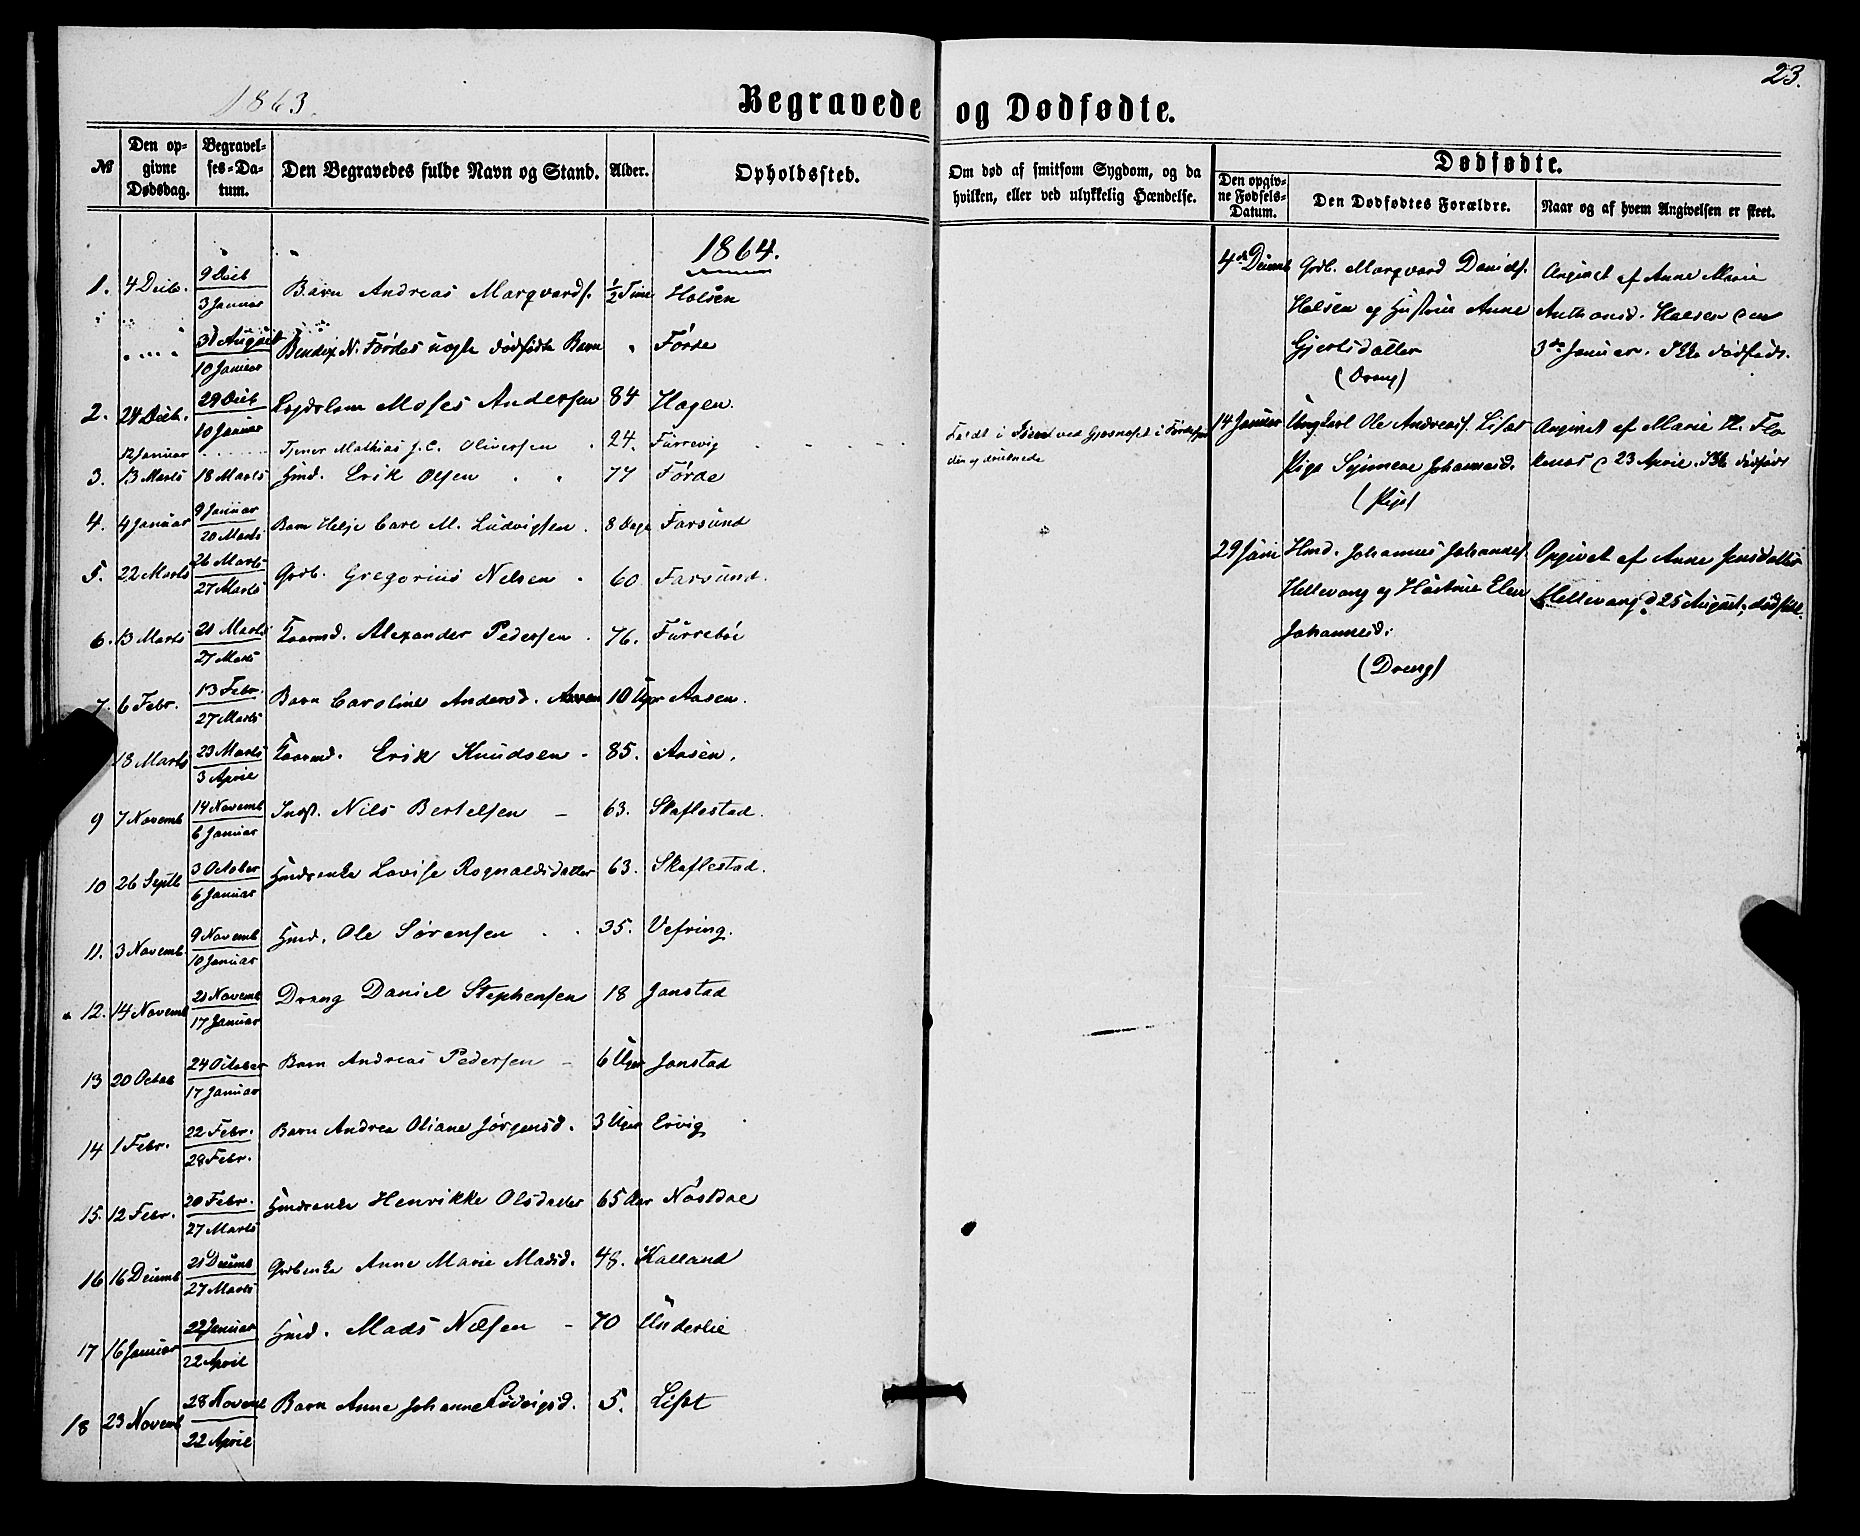 23.
1863.
Begravede og Dødfødte.
№
Den op-
givne
Dødsdag.
Begravel-
ses-Da-
tum.
Den Begravedes fulde Navn og Stand.
Alder.
Opholdssted.
Om død af smitsom Sygdom, og da
hvilken, eller ved ulykkelig Hændelse.
Dødfødte.
Den opgiv-
ne Fødsels-
Datum.
Den Dødfødtes Forældre.
Naar og af hvem Angivelsen er skeet.
1864.
1. 4 Decb. 9 Decb 3 Januar Barn Andreas Marqvards. ½ Time Halsen
31 August 10 Januar Bendix N. Førdes dødfødte Barn " Førde
2. 24 Decb. 29 Decb 10 Januar Moses Andersen 84 Hagen.
12 Januar Tjener Mathias J. C. Oliversen . 24. Furrevig
3. 13 Marts 18 Marts Hmd. Erik Olsen 77 Førde
4. 4 Januar 9 Januar 20 Marts Barn Helje Carl M. Ludvigsen . 8 Dage Farsund
5. 22 Marts 26 Marts 27 Marts Grdb. Gregorius Nelsen . 60. Farsund.
6. 13 Marts 21 Marts 27 Marts Kaarmd. Alexander Pedersen . 76. Furrebøe
7. 6 Febr. 13 Febr. 27 Marts Barn Caroline Andersd. Aasen 10 Uger Aasen.
18 Marts 23 Marts 3 April Kaarmd. Erik Knudsen - 85. Aasen.
9 7 Novemb 14 Novemb 6 Januar Inds. Nils Bertelsen - 63. Skaflestad.
10 26 Septb 3 October 6 Januar Hmdsenke Lovise Rognaldsdatter 63. Skaflestad.
11. 3 Novemb. 9 Novemb 10 Januar Hmd. Ole Sørensen 35. Vefring.
12. 14 Novemb 21 Novemb 17 Januar Dreng Daniel Stephensen 18 Jonstad
13 20 Octob 24 October 17 Januar Barn Andreas Pedersen - 6 Uger Jonstad
14 1 Febr. 22 Febr. 28 Febr. Barn Andrea Oliane Jørgensd. 3 Uger Ervig
15. 12 Febr. 20 Febr. 27 Marts Hmdsenke Henrikke Olsdatter 65 Aar Nøsdae
16 16 Decemb 21 Decemb 27 Marts Grdbenke Anne Marie Madsd. 48. Kalland
17 16 Januar 22 Januar 22 April Hmd. Mads Nelsen - 70 Underlie
18 23 Novemb 28 Novemb 22 April Barn Anne Johanne Ludvigsd. 5. Liset
Førdefjor
den og druknede
4de Decemb Grdb. Marqvard Davids.
Halsen og Hustrue Anne
Gjertsdatter
(Dreng)
Angivet af Anne Marie
Anthonsd. Halsen den
3de Januar. Ikke dødfødt.
14 Januar Ungkarl Ole Andreas. Liset
Pige Synneve Johannesd.
(Pige)
Angivet af Marie H. Flo
kenes d 23 April. Ikke dødfødt
29 Juni Hmd. Johannes Johannes.
Hellevang og Hustrue Elen
Johannesd.
(Dreng)
Opgivet af Anne Jensdatter
Hellevang d 25 August; dødfødt.